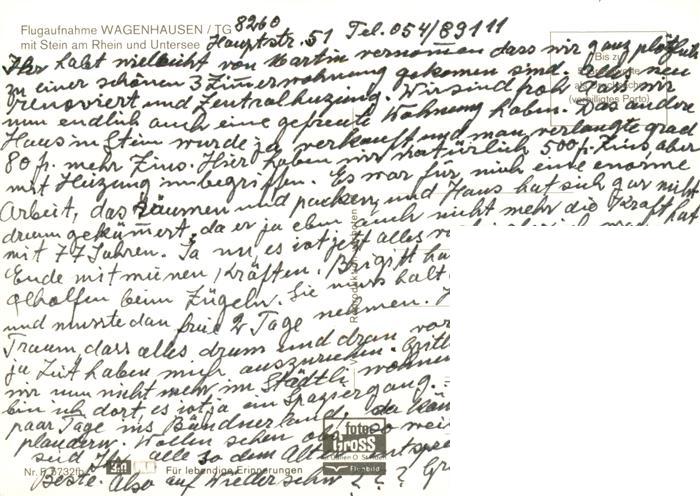 Flugaufnahme WAGENHAUSEN / TG
mit Stein am Rhein und Untersee
8260
Hauptstr. 51 Tel. 054/89111
Ihr habt vielleicht von Martin vernommen dass wir ganz plötzlich
zu einer schönen 3 Zimmerwohnung gekomen sind. Alles neu
renoviert und Zentralheizung. Wir sind froh dass wir
nun endlich auch eine gefreute Wohnung haben. Das andere
Haus in Stein wurde ja verkauft und man verlangte grad
80 fr. mehr Zins. Hier haben wir natürlich 500 fr. Zins, aber
mit Heizung inbegriffen. Es war für mich eine enorme
Arbeit, das räumen und packen, und Hans hat sich gar nicht
drum gekümert, da er ja eben auch nicht mehr die Kraft hat
mit 77 Jahren. Ja nu, es ist jetzt alles
Ende mit meinen Kräften. Brigitt
gholfen beim Zügeln. Sie muss halt
und musste dan frei 2 Tage nehmen.
Traum, dass alles drum und dran
ja Zeit haben mich auszuruhen.
wir nun nicht mehr im Städtli wohnen
bin ich dort, es ist ja ein Spaziergang.
paar Tage ins Bündnerland,
plaudern. Wollen sehen ob
seid Ihr alle 3o dem Alt
Beste. Also auf Wiedersehn ? ? ?
(verbilligtes Porto)
foto GROSS
St. Gallen
Flugbild
Für lebendige Erinnerungen